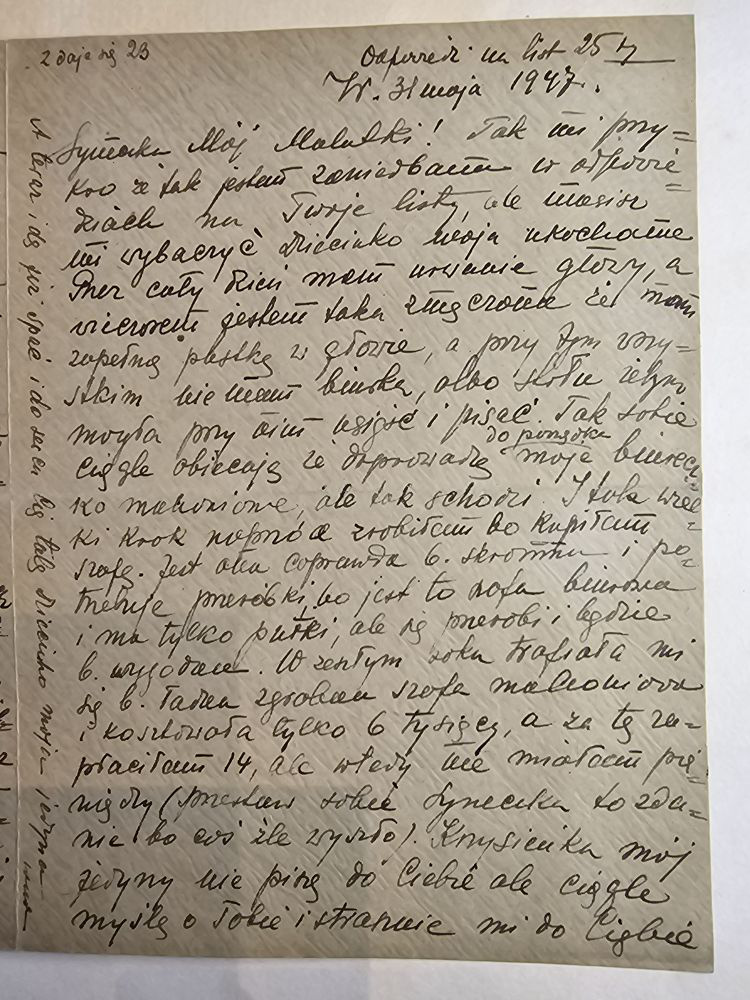 zdaje się 23
Odpowiedź na list 25 IV
W. 31 maja 1947.
Syneczku Mój Malutki! Tak mi przy=
kro że tak jestem zaniedbana w odpowie=
dziach na Twoje listy, ale musisz
mi wybaczyć dziecinko moja ukochana
Przez cały dzień mam urwanie głowy, a
wieczorem jestem taka zmęczona że mam
zupełną pustkę w głowie, a przy tym wszy=
stkim nie mam biurka, albo stołu żebym
mogła przy nim usiąść i pisać. Tak sobie
ciągle obiecuję że doprowadzę do porządku moje biurecz=
ko mahoniowe, ale tak schodzi. I tak wiel=
ki krok naprzód zrobiłam bo kupiłam
szafę. Jest ona coprawda b. skromna i po=
trzebuje przeróbki, bo jest to szafa biurowa
i ma tylko półki, ale się przerobi i będzie
b. wygodna. W zeszłym roku trafiała mi
się b. ładna zgrabna szafa mahoniowa
i kosztowała tylko 6 tysięcy, a za tę za=
płaciłam 14, ale wtedy nie miałam pie=
niędzy (przestaw sobie Syneczku to zda=
nie bo coś źle wyszło). Krzysieńku mój
jedyny nie piszę do Ciebie ale ciągle
myślę o Tobie i strasznie mi do Ciebie
A teraz idę już spać i do serca Cię tulę dziecinko moja jedyna